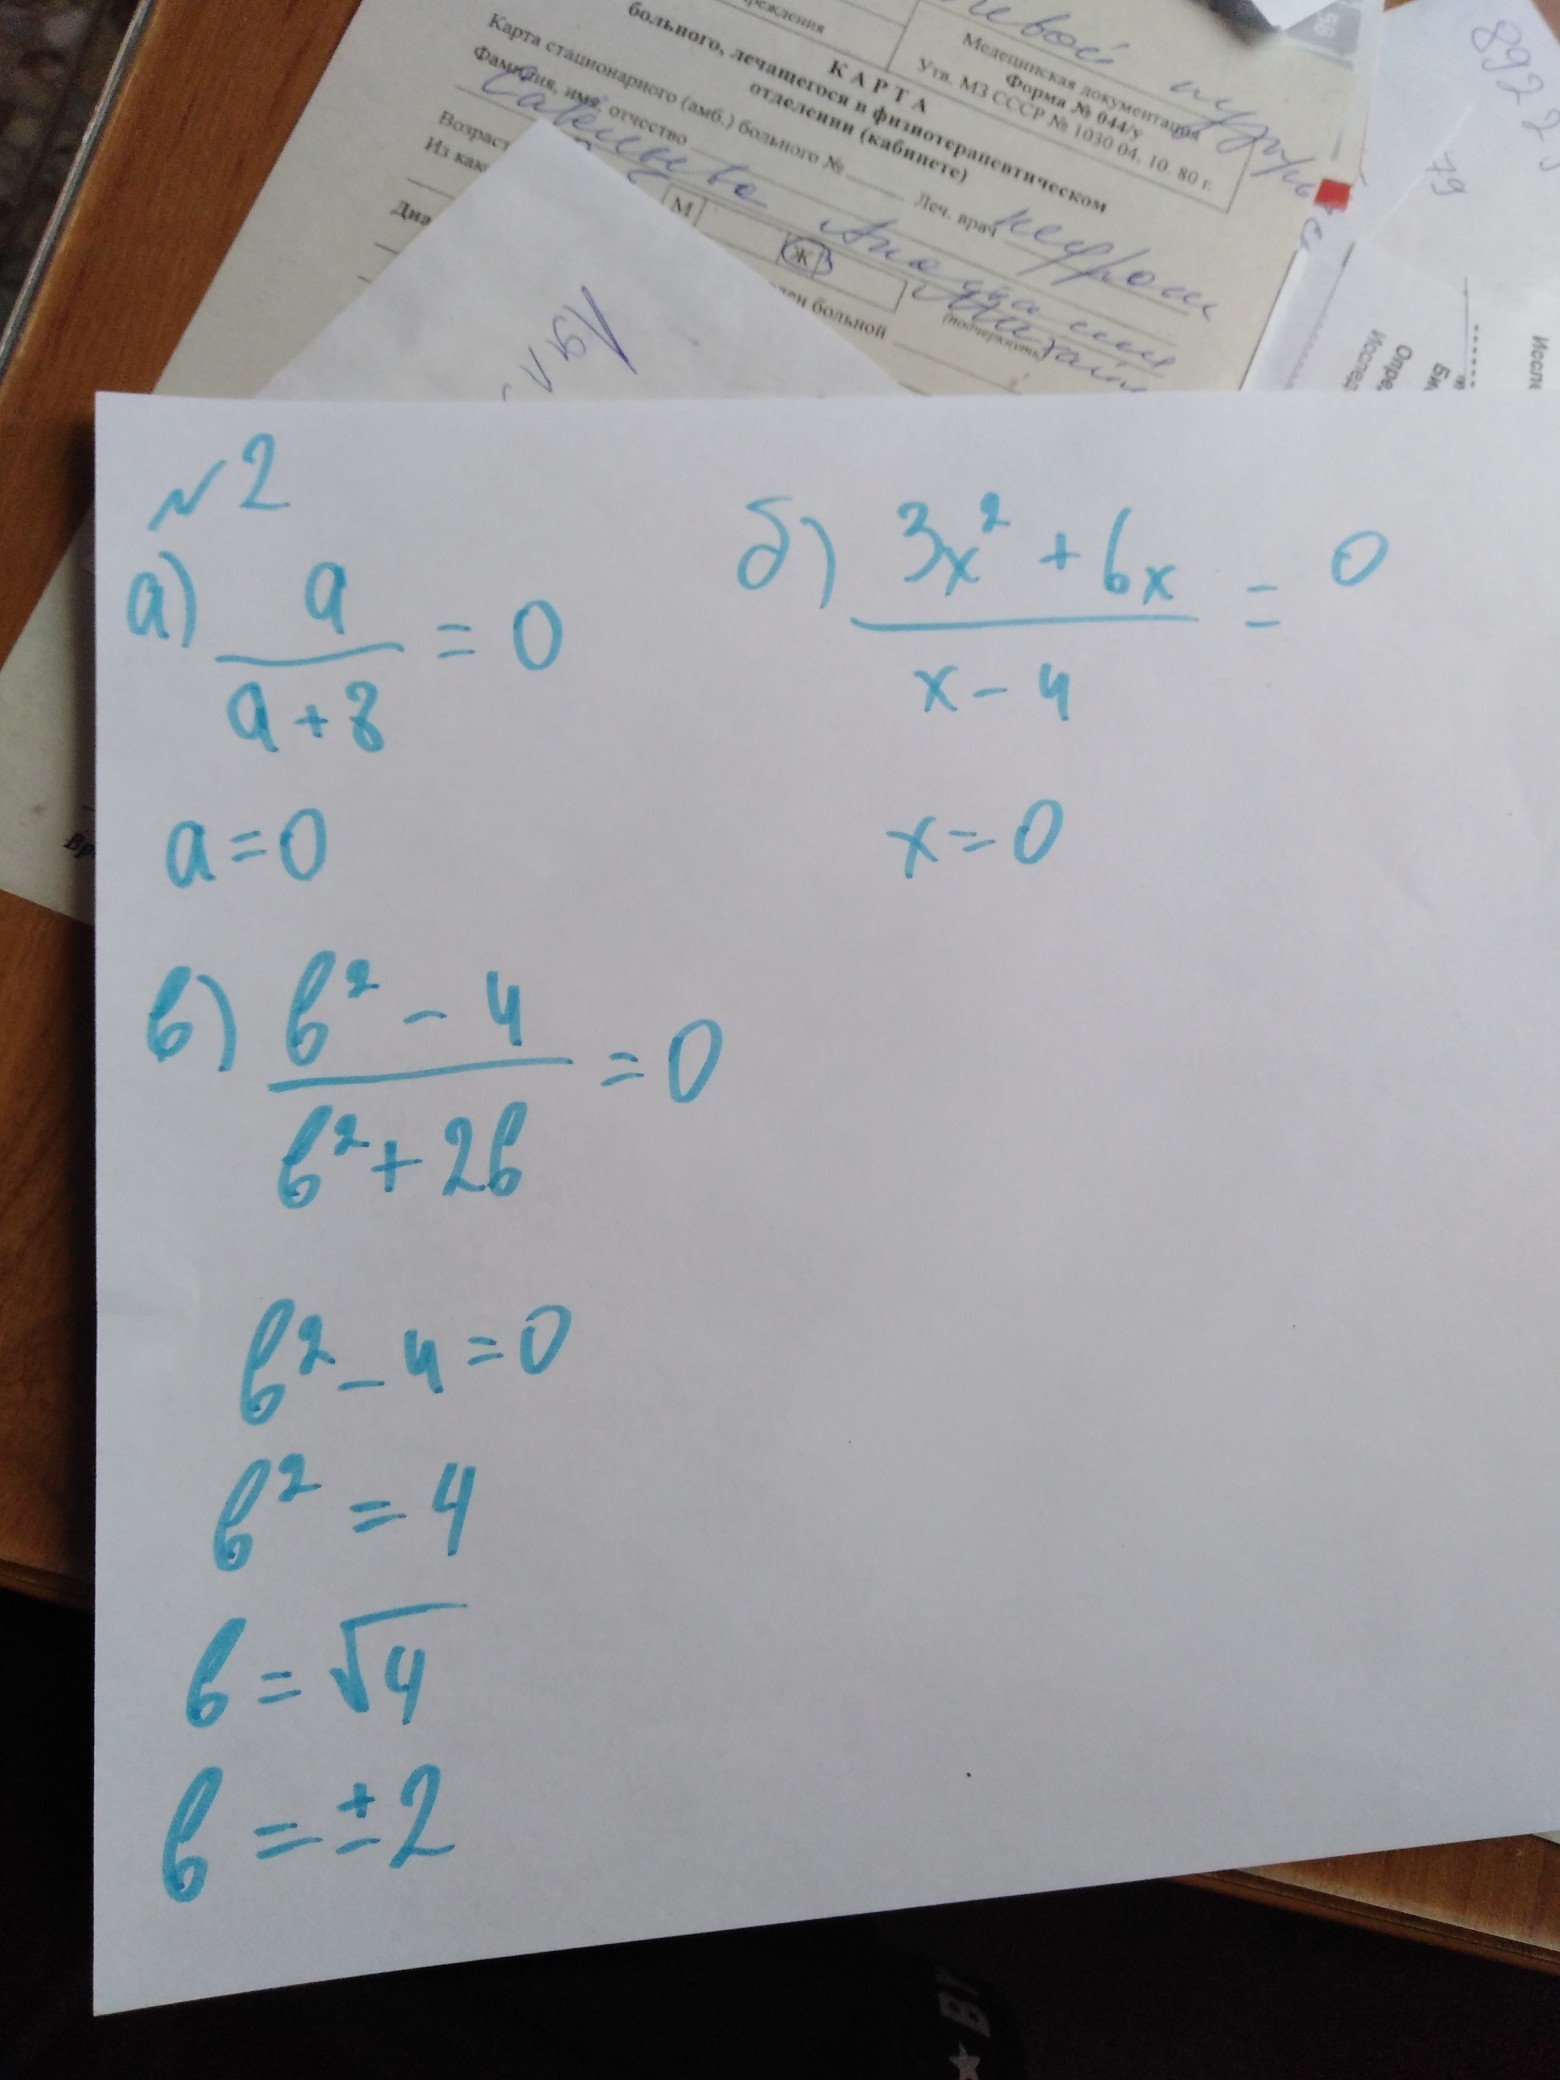 58
Медецинская документация
Форма № 044/у
Утв. МЗ СССР № 1030 04. 10. 80 г.
КАРТА
больного, лечащегося в физиотерапевтическом
отделении (кабинете)
Карта стационарного (амб.) больного №
Леч. врач
Фамилия, имя, отчество
Возраст
М
Ж
Из как
больной
(подчеркнуть)
8922
79
Опре,
Исслед
№2
а) a / a + 8 = 0
a = 0
б) 3x² + 6x / x - 4 = 0
x = 0
в) b² - 4 / b² + 2b = 0
b² - 4 = 0
b² = 4
b = √4
b = ± 2
BY